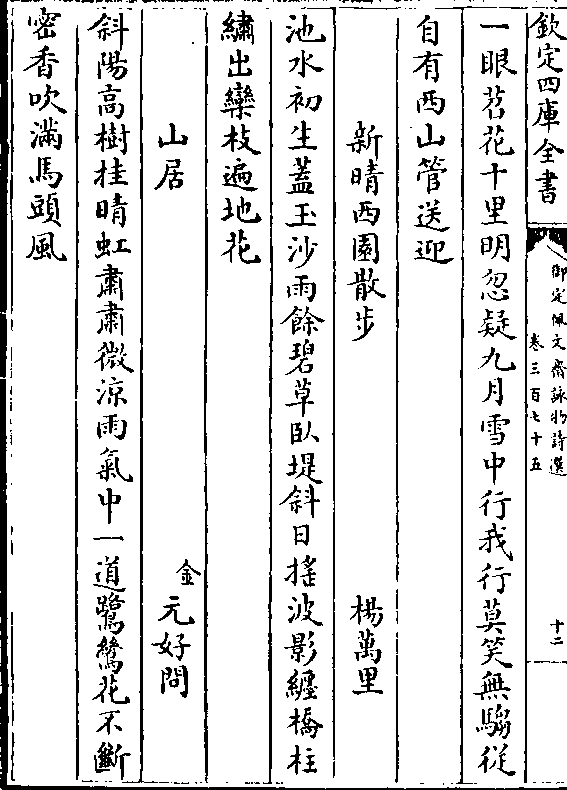 欽定四庫全書
御定佩文齋詠物詩選
卷三百七十五
十二
一眼苕花十里明忽疑九月雪中行我行莫笑無騶從
自有西山管送迎
新晴西園散步 楊萬里
池水初生蓋玉沙雨餘碧草臥堤斜日搖波影纏橋柱
繡出欒枝遍地花
山居 金 元好問
斜陽高樹挂晴虹肅肅微涼雨氣中一道鷺鷥花不斷
密香吹滿馬頭風